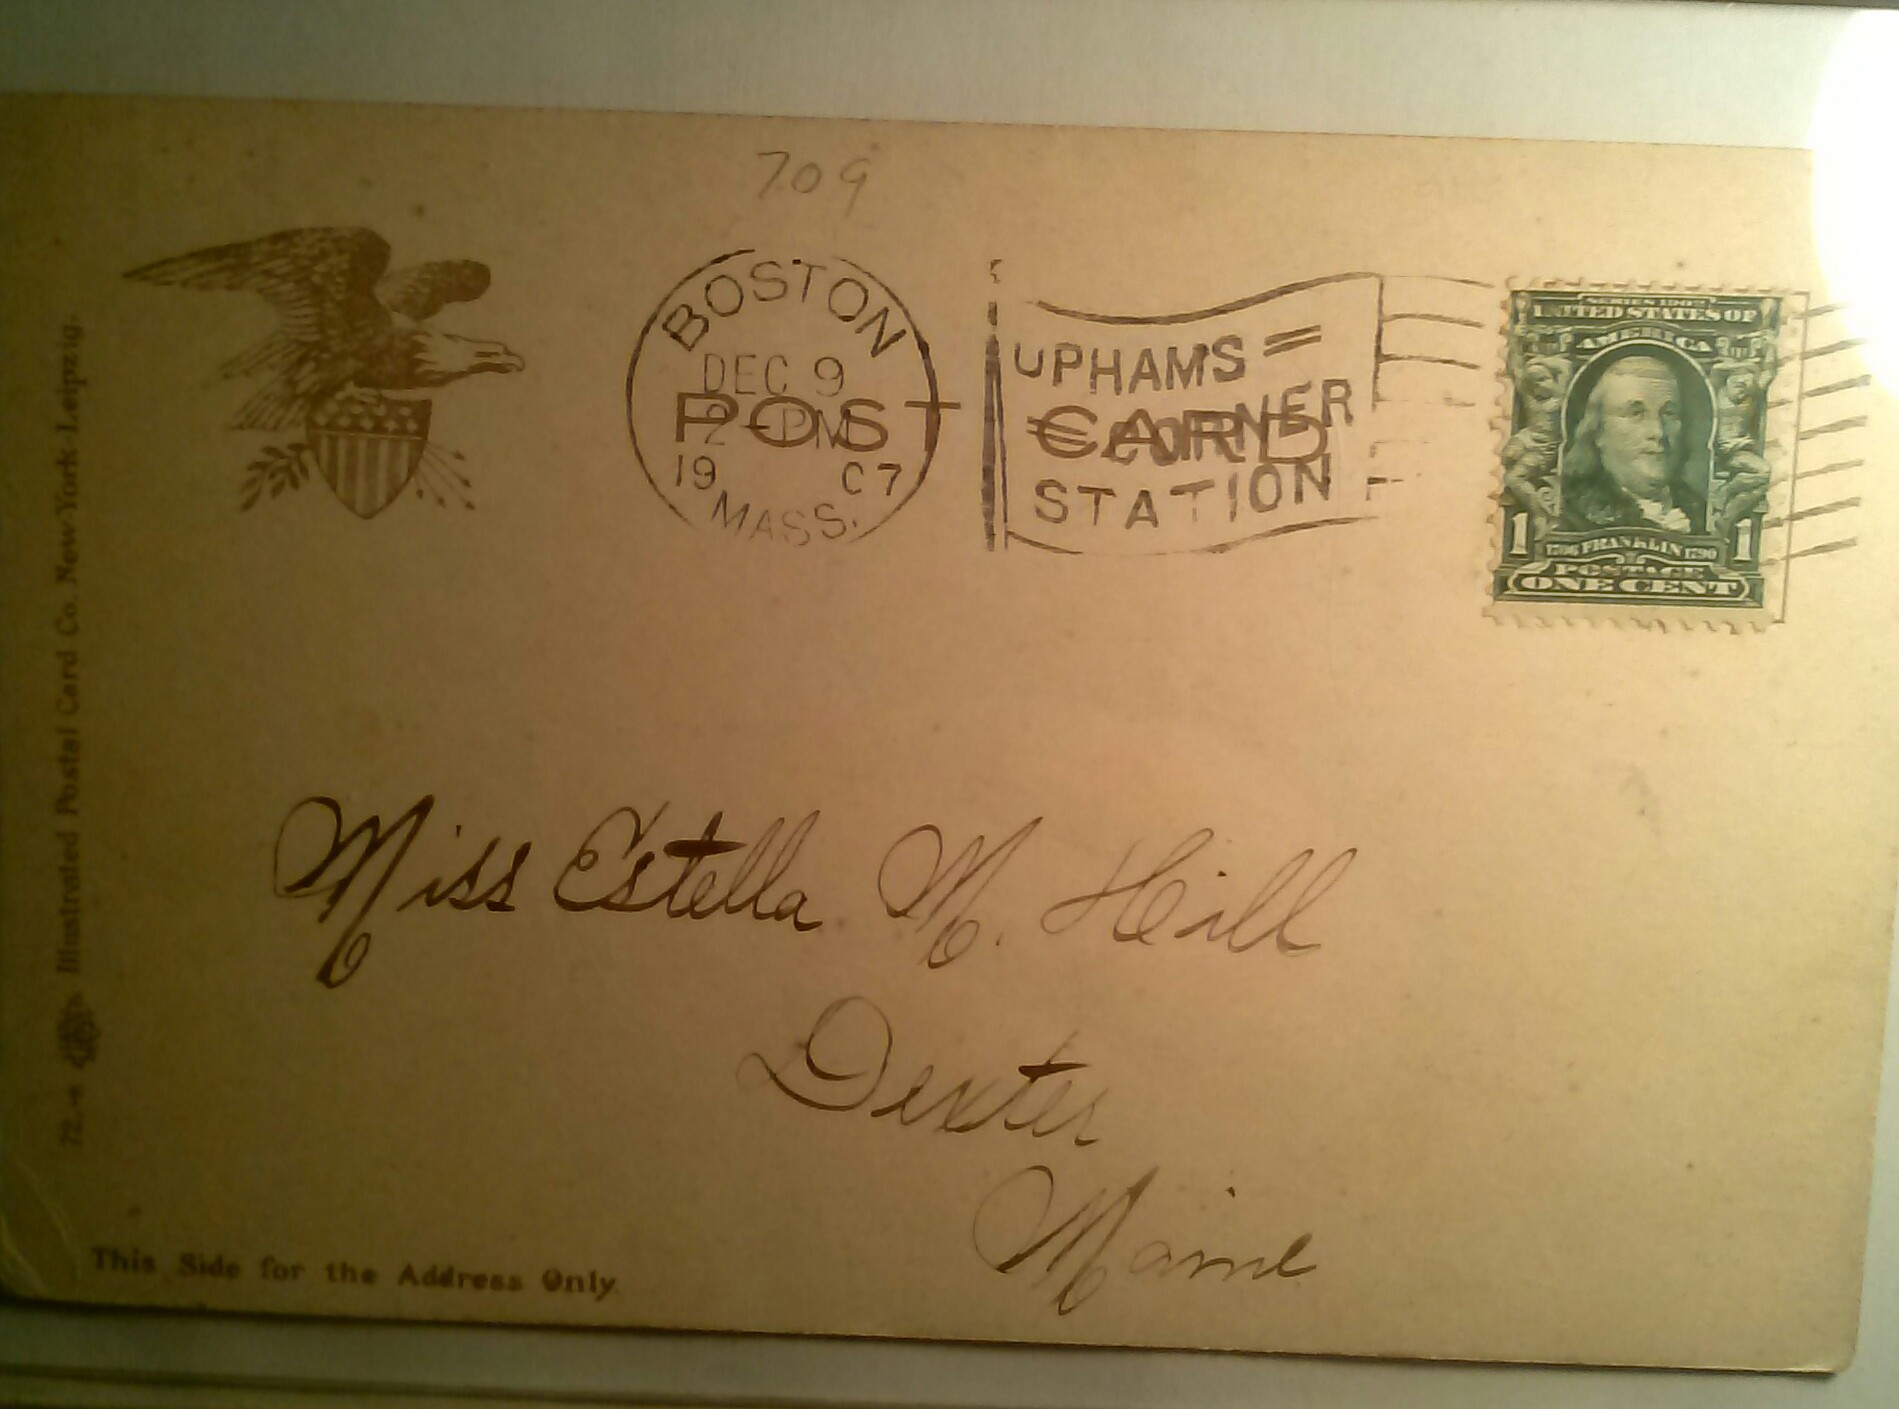 709
BOSTON
DEC 9
2 - PM
19 07
MASS.
POST CARD
UPHAMS
CORNER
STATION
SERIES 1902
UNITED STATES OF
AMERICA
1 1706 FRANKLIN 1790 1
POSTAGE
ONE CENT
Miss Estella M. Hill
Dexter
Maine
This Side for the Address Only.
72. Illustrated Postal Card Co. New York-Leipzig.